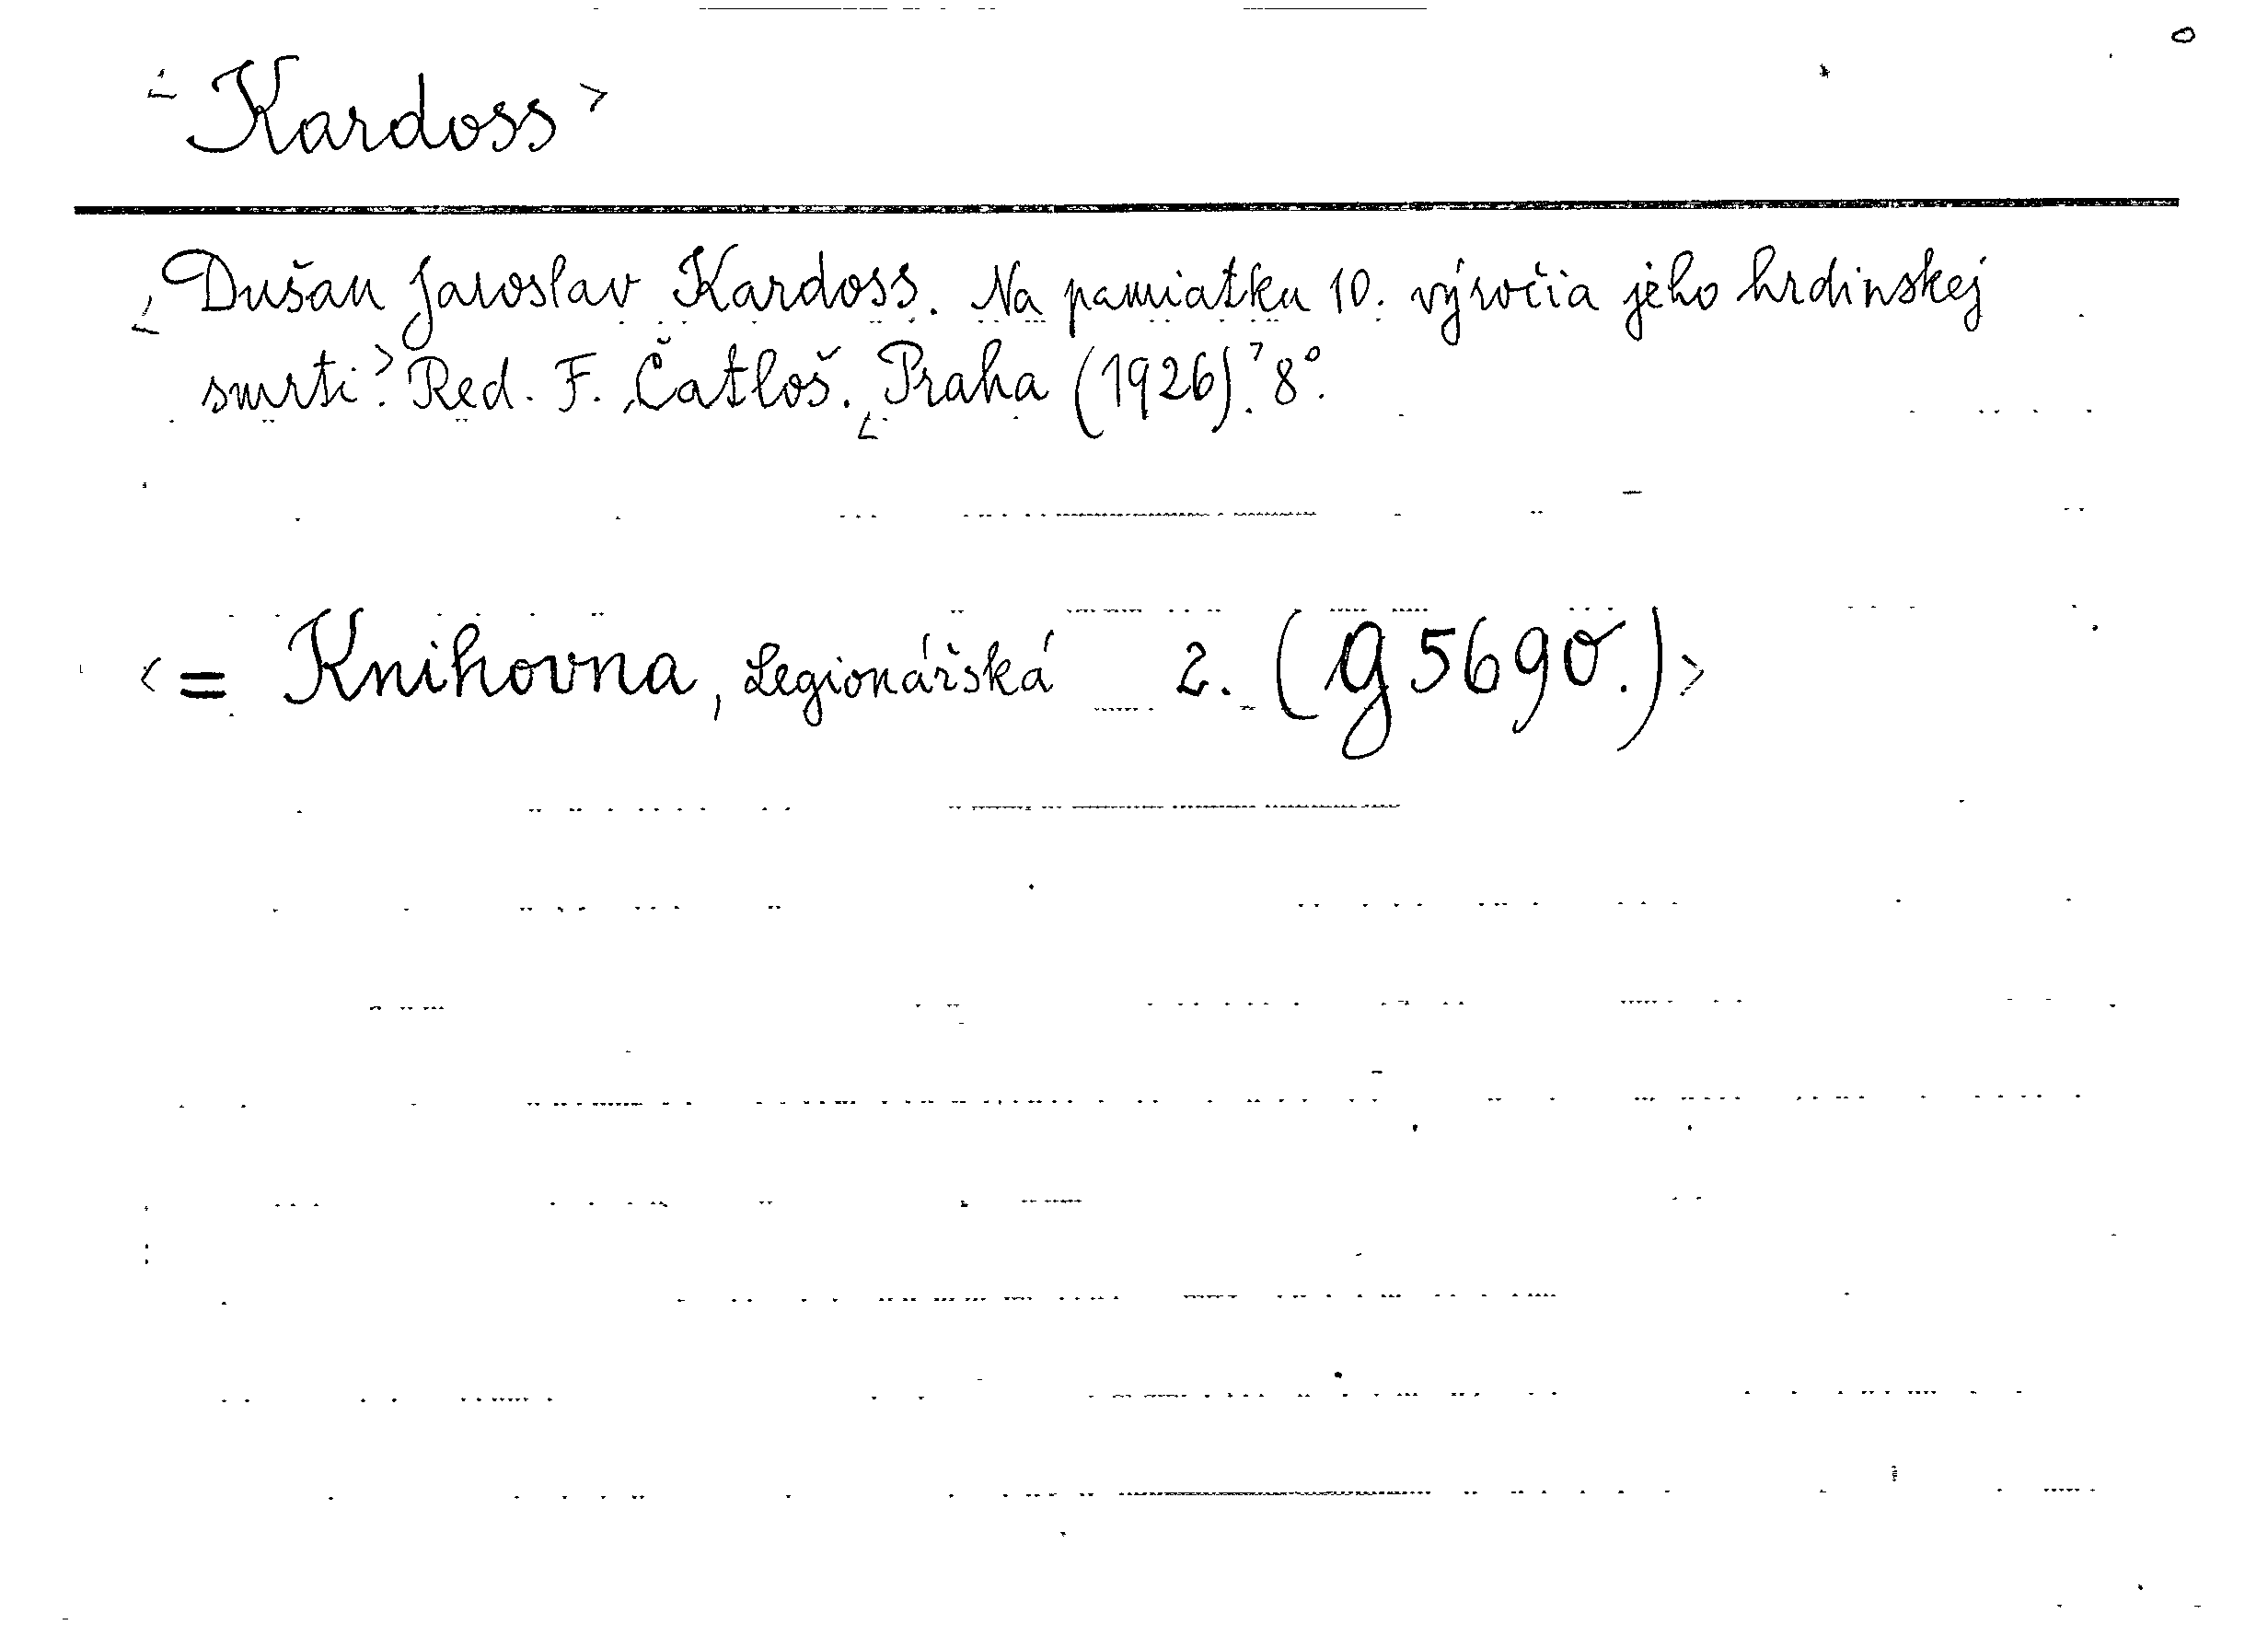 <Kardoss>
<Dušan Jaroslav Kardoss. Na pamiatku 10. výročia jeho hrdinskej
smrti.> Red. F. Čatloš. <Praha (1926).> 8°.
<= Knihovna, Legionářská 2. (g 5690.)>